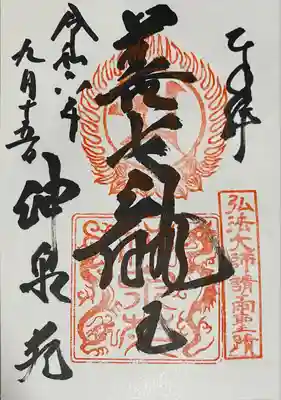 奉拝
弘法大師請雨
善女龍王
令和六年
九月十五日
神泉苑